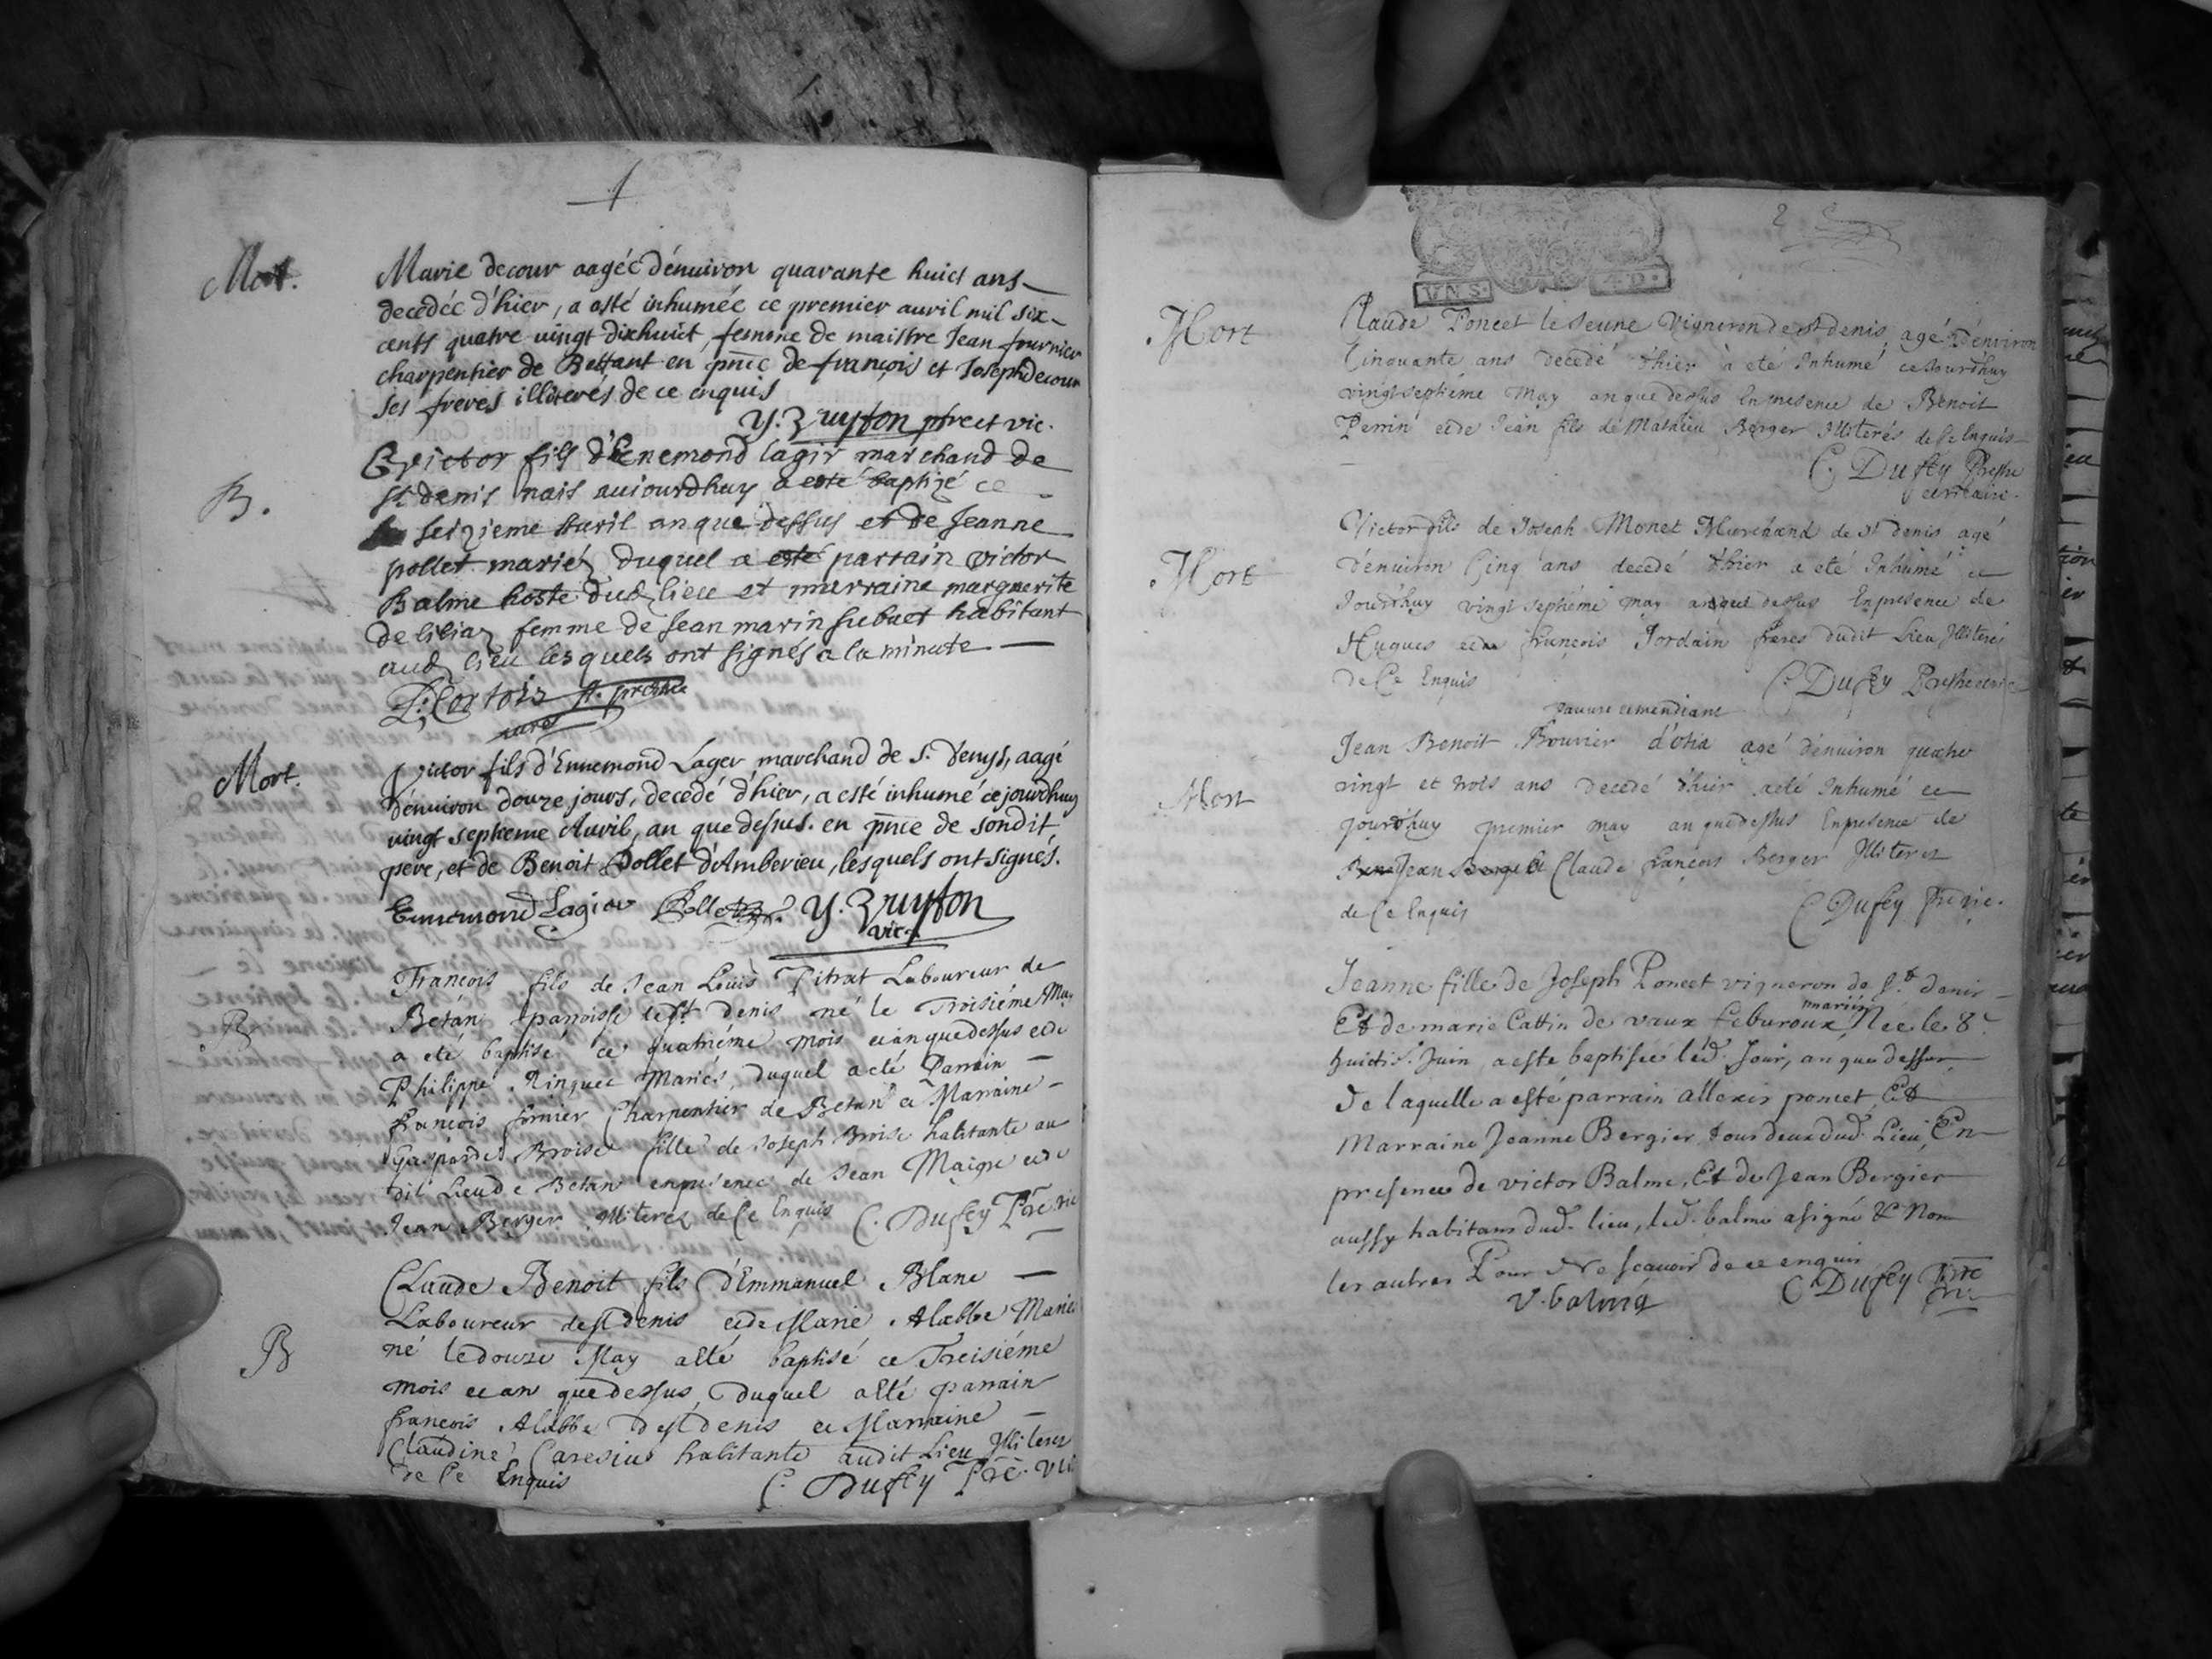 1
Mort.
Marie decour aagée d'énuiron quarante huict ans
decedée d'hier, a esté inhumée ce premier auril mil six
cents quatre uingt dixhuict, femme de maistre Jean fournier
charpentier de Bettant en pnce de françois et Joseph decour
ses freres illiterés de ce enquis
y. Bruyson ptre et vic.
B.
Victor fils d'Enemond lagir marchand de
st denis nais auiourdhuy a esté baptizé ce
seizieme Auril an que dessus et de Jeanne
pollet mariéz duquel a esté parrain victor
Balme hoste dud lieu et marraine marguerite
de liliaz femme de Jean marin habitant
aud lieu lesquels ont signés a la minute
curé
Mort.
Victor fils d'Ennemond Lager marchand de S. Denys, aagé
d'énuiron douze jours, decedé d'hier, a esté inhumé ce jourdhuy
vingt septieme Auril, an que dessus. en pnce de sondit
pere, et de Benoit Pollet d'Amberieu, lesquels ont signés.
Ennemond Lagier Pollet y. Bruyson
vic.
B
François fils de Jean Louis Pitrat Laboureur de
Betan parroisse de st denis né le Troisiéme May
a eté baptisé ce quatriéme mois et an que dessus et de
Philippe Ringuet Mariés, duquel a eté Parrain
françois fornier Charpentier de Betan et Marraine
Gasparde Broise fille de Joseph Broise habitante au
dit Lieu de Betan en presence de Jean Maigre et de
Jean Berger Illiterez de Ce Enquis C. Dufey Ptre vic
B
Claude Benoit fils d'Emmanuel Blanc
Laboureur de st denis et de Marie Alabbe Mariés
né le douze May a eté baptisé ce Treisiéme
mois et an que dessus, duquel a eté parrain
françois Alabbe de st denis et Marraine
Claudine habitante audit Lieu Illiterez
de Ce Enquis C. Dufey Ptre. vic
2
VN S. 4 D.
Mort
Claude Poncet le Jeune Vigneron de st denis agé d'énviron
Cinquante ans decedé d'hier a eté Inhumé ce Jourd'huy
vingt septiéme May an que dessus En presence de Benoit
Perrin et de Jean fils de Mathieu Berger Illiterés de Ce Enquis
C. Dufey Prestre
et vicaire.
Mort
Victor fils de Joseph Monet Marchand de st denis agé
d'énuiron Cinq ans decedé d'hier a eté Inhumé ce
Jourd'huy vingt septiéme may an que dessus En presence de
Hugues et de françois Jordain freres dudit Lieu Illiterés
de Ce Enquis C. Dufey Prestre vic
Mort
pauure et mendiant
Jean Benoit Bouvier agé d'énuiron quatre
vingt et trois ans decedé d'hier a eté Inhumé ce
jourd'huy premier may an que dessus En presence de
Jean et Claude françois Berger Illiterez
de Ce Enquis C Dufey Ptre vic.
Jeanne fille de Joseph Poncet vigneron de St denis
mariés
Et de marie Cattin de vaux Febvroux, Née le 8e
huictie. Juin, a esté baptisée led. Jour, an que dessus
de laquelle a esté parrain allexis poncet, Et
Marraine Jeanne Bergier tous deux dud. Lieu, En
presence de victor Balme, Et de Jean Bergier
aussy habitans dud. lieu, led. balme a signé & Non
les autres Pour Ne scauoir de ce enquis
V. balme C Dufey Ptre
vic